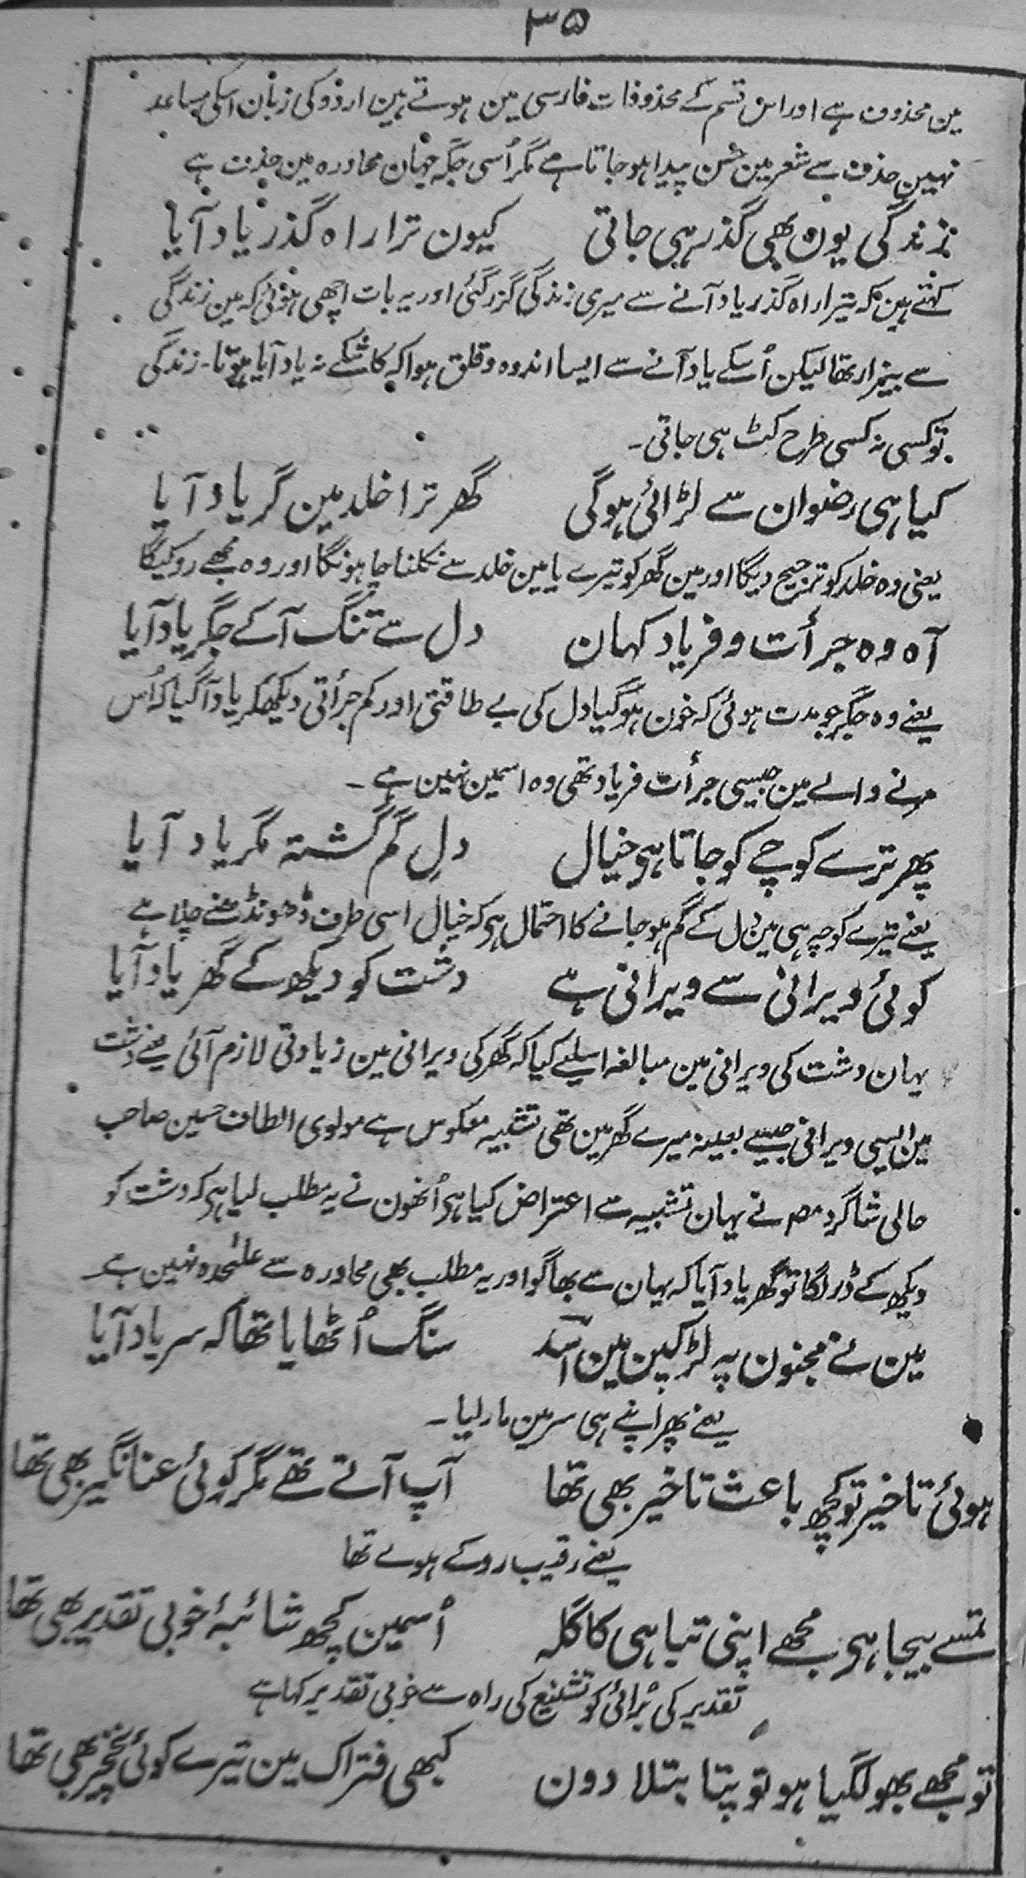 ۳۵
مین محذوف ہے اور اس قسم کے محذوفات فارسی مین ہوتے ہین اردو کی زبان اسکی مساعد
نہین حذف سے شعر مین حسن پیدا ہو جاتا ہے مگر اُسی جگہ جہان محاورہ مین حذف ہے
زندگی یون بھی گذر ہی جاتی کیون ترا راہ گذر یاد آیا
کہتے ہین کہ تیرا راہ گذر یاد آنے سے میری زندگی گزر گئی اور یہ بات اچھی ہوئی کہ مین زندگی
سے بیزار تھا لیکن اُسکے یاد آنے سے ایسا اندوہ و قلق ہوا کہ کاشکے نہ یاد آیا ہوتا۔ زندگی
تو کسی نہ کسی طرح کٹ ہی جاتی۔
کیا ہی رضوان سے لڑائی ہوگی گھر ترا خلد مین گر یاد آیا
یعنی وہ خلد کو ترجیح دیگا اور مین گھر کو تیرے یا مین خلد سے نکلنا چاہونگا اور وہ مجھے روکیگا
آہ وہ جرأت و فریاد کہان دل سے تنگ آکے جگر یاد آیا
یعنے وہ جگر جو مدت ہوئی کہ خون ہو گیا دل کی بے طاقتی اور کم جرأتی دیکھکر یاد آگیا کہ اُس
مرنے والے مین جیسی جرأت فریاد تھی وہ اسمین نہین ہے۔
پھر ترے کوچے کو جاتا ہی خیال دلِ گم گشتہ مگر یاد آیا
یعنے تیرے کوچہ ہی مین دل کے گم ہو جانے کا احتمال ہی کہ خیال اسی طرف ڈھونڈھنے چلا ہے
کوئی ویرانی سے ویرانی ہے دشت کو دیکھ کے گھر یاد آیا
یہان دشت کی ویرانی مین مبالغہ اسلیے کیا کہ گھر کی ویرانی مین زیادتی لازم آئی یعنے دشت
مین ایسی ویرانی جیسے بعینہ میرے گھر مین تھی تشبیہ معکوس ہے مولوی الطاف حسین صاحب
حالی شاگرد مصہ نے یہان تشبیہ سے اعتراض کیا ہی اُنھون نے یہ مطلب لیا ہی کہ دشت کو
دیکھ کے ڈر لگا تو گھر یاد آیا کہ یہان سے بھاگو اور یہ مطلب بھی محاورہ سے علٰحدہ نہین ہے۔
مین نے مجنون پہ لڑکپن مین اسد سنگ اُٹھایا تھا کہ سر یاد آیا
یعنے پھر اپنے ہی سر مین مار لیا۔
ہوئی تاخیر تو کچھ باعث تاخیر بھی تھا آپ آتے تھے مگر کوئی عنانگیر بھی تھا
یعنے رقیب روکے ہوے تھا
تمسے بیجا ہی مجھے اپنی تباہی کا گلہ اُسمین کچھ شائبۂ خوبی تقدیر بھی تھا
تقدیر کی بُرائی کو تشنیع کی راہ سے خوبی تقدیر کہا ہے
تو مجھے بھولگیا ہو تو پتا بتلا دون کبھی فتراک مین تیرے کوئی نخچیر بھی تھا